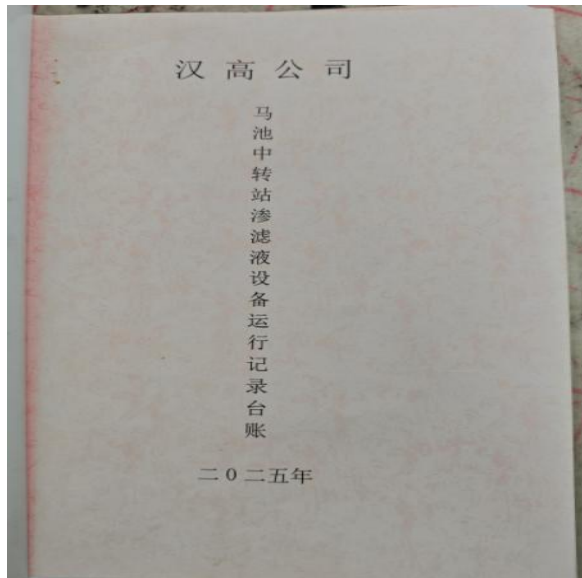 汉高公司
马池中转站渗滤液设备运行记录台账
二0二五年